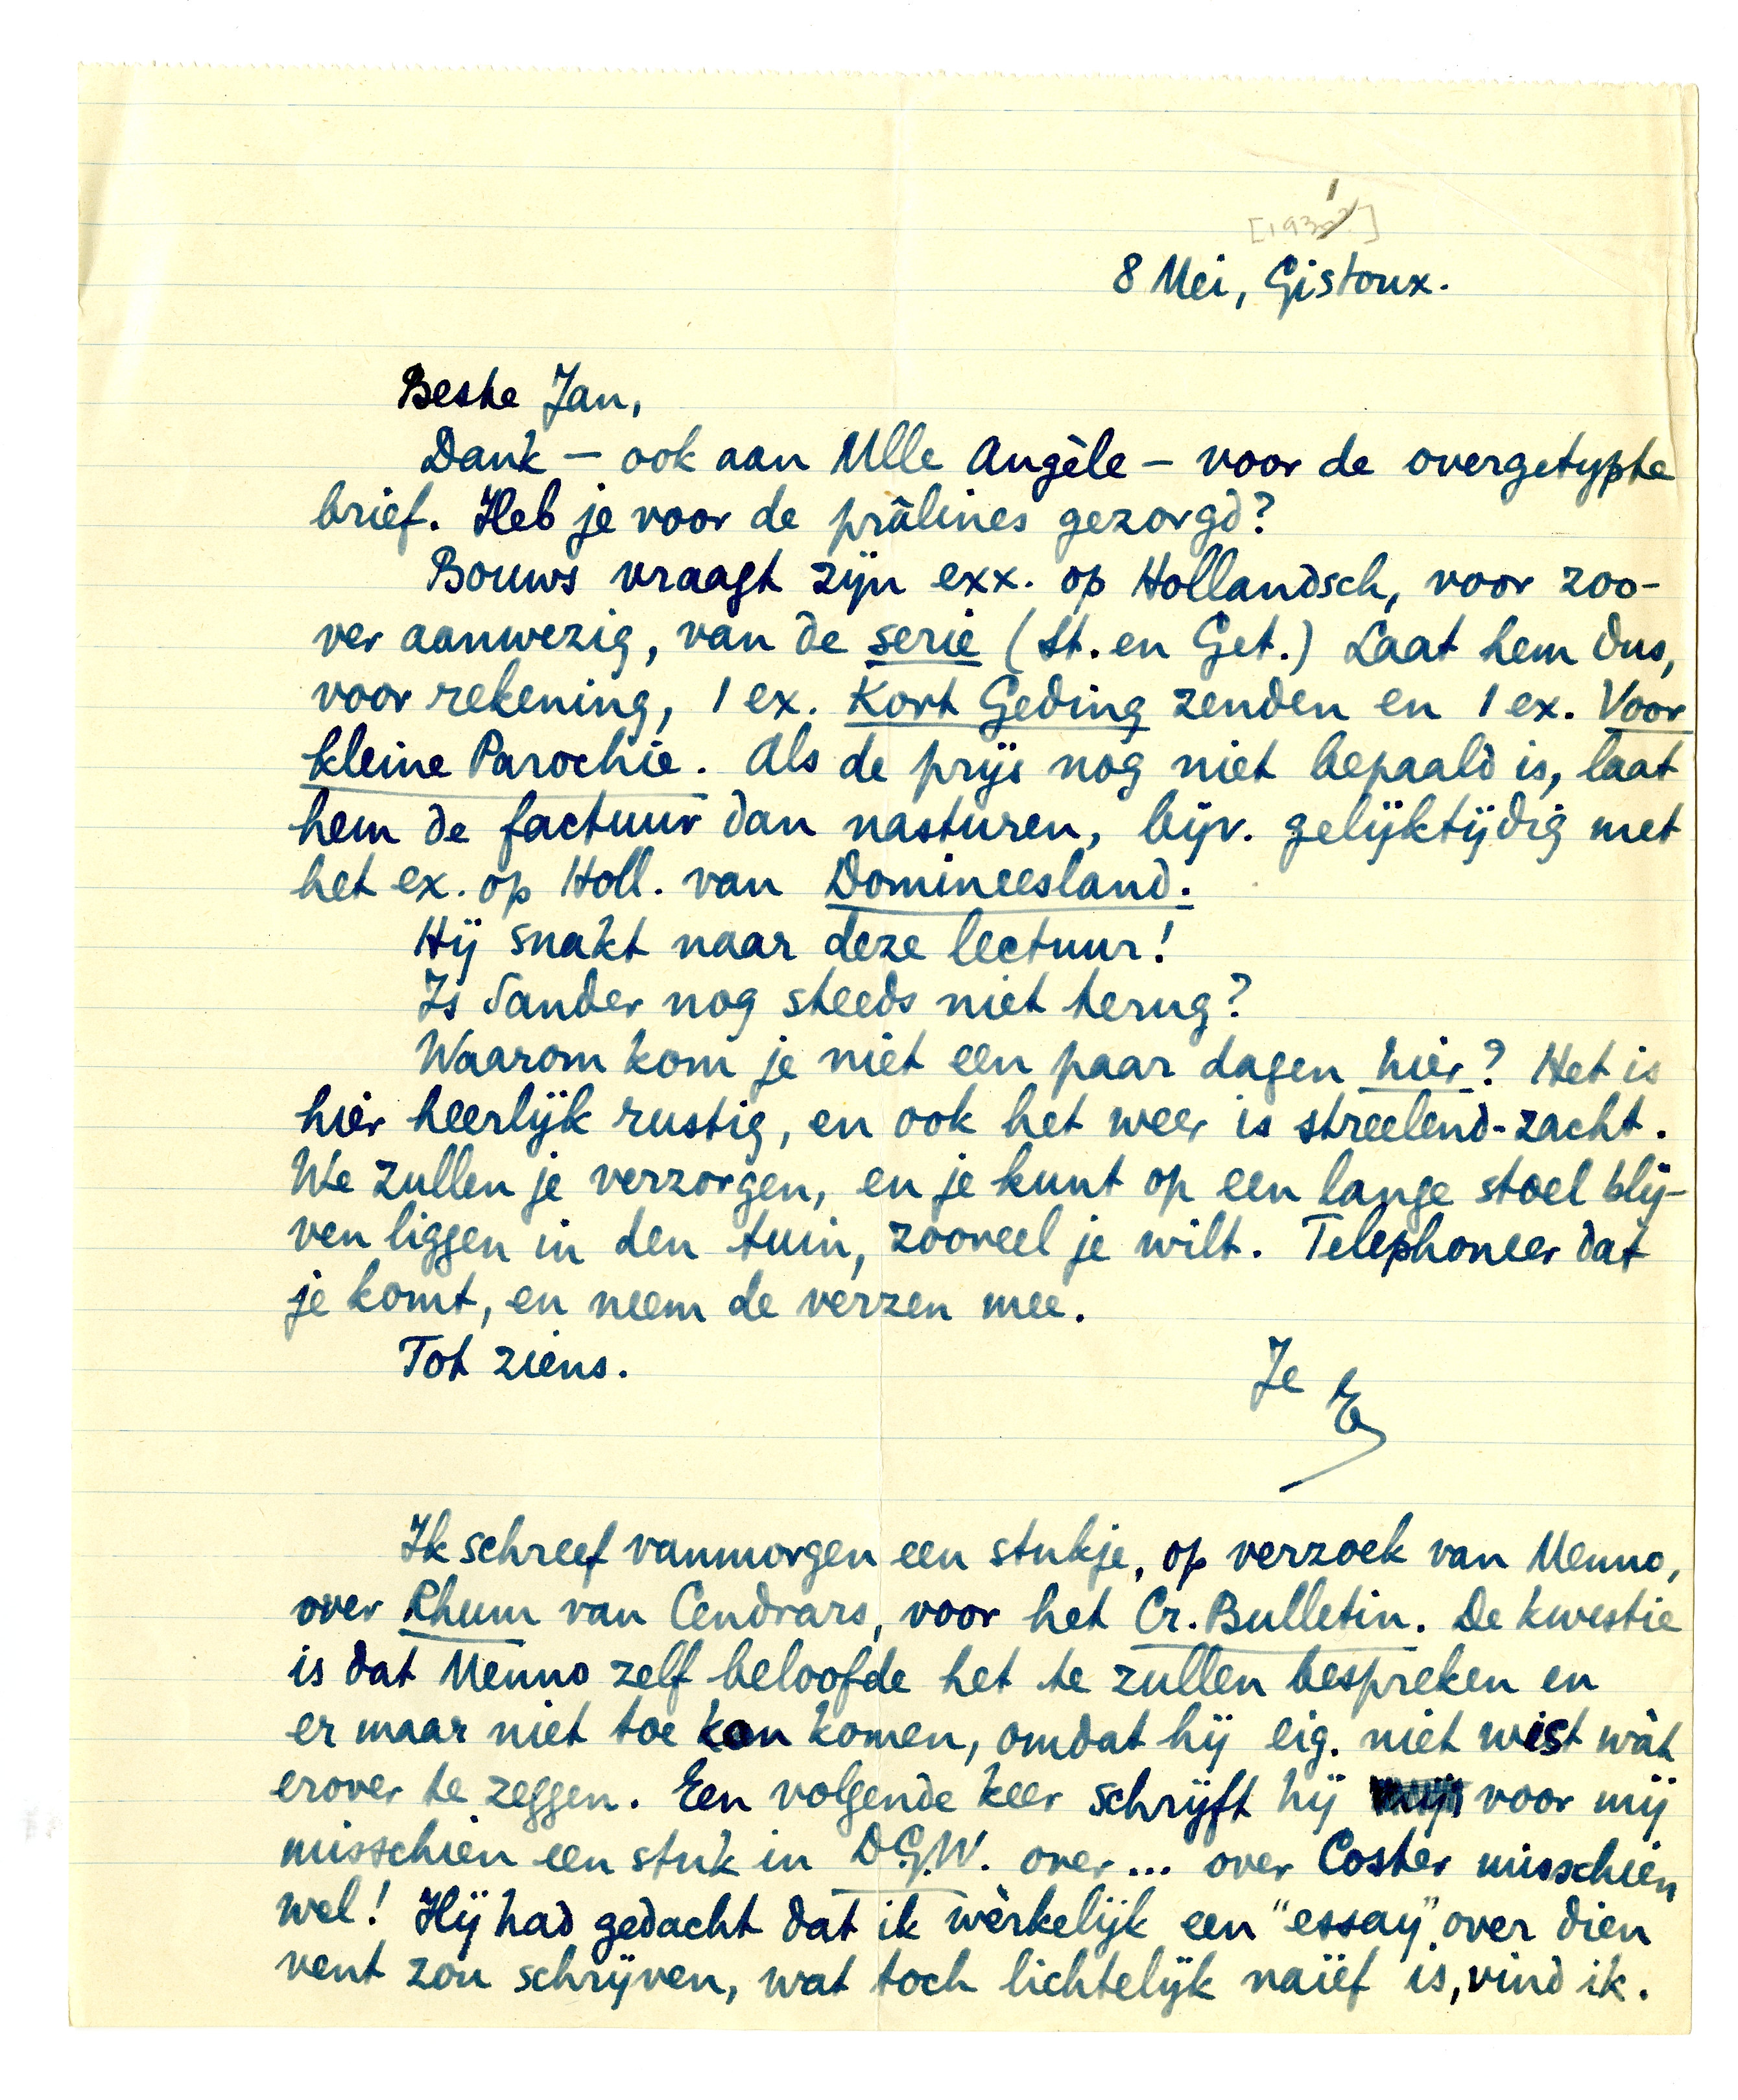 [1931]
8 Mei, Gistoux.
Beste Jan,
Dank — ook aan Mlle Angèle — voor de overgetypte
brief. Heb je voor de prâlines gezorgd?
Bouws vraagt zijn exx. op Hollandsch, voor zoo-
ver aanwezig, van de serie (St. en Get.) Laat hem dus,
voor rekening, 1 ex. Kort Geding zenden en 1 ex. Voor
kleine Parochie. Als de prijs nog niet bepaald is, laat
hem de factuur dan nasturen, bijv. gelijktijdig met
het ex. op Holl. van Domineesland.
Hij snakt naar deze lectuur!
Is Sander nog steeds niet terug?
Waarom kom je niet een paar dagen hier? Het is
hier heerlijk rustig, en ook het weer is streelend-zacht.
We zullen je verzorgen, en je kunt op een lange stoel blij-
ven liggen in den tuin, zooveel je wilt. Telephoneer dat
je komt, en neem de verzen mee.
Tot ziens.
Je E
Ik schreef vanmorgen een stukje, op verzoek van Menno,
over Rhum van Cendrars, voor het Cr. Bulletin. De kwestie
is dat Menno zelf beloofde het te zullen bespreken en
er maar niet toe kon komen, omdat hij eig. niet wist wàt
erover te zeggen. Een volgende keer schrijft hij voor mij
misschien een stuk in D.G.W. over... over Coster misschien
wel! Hij had gedacht dat ik wèrkelijk een "essay" over dien
vent zou schrijven, wat toch lichtelijk naïef is, vind ik.